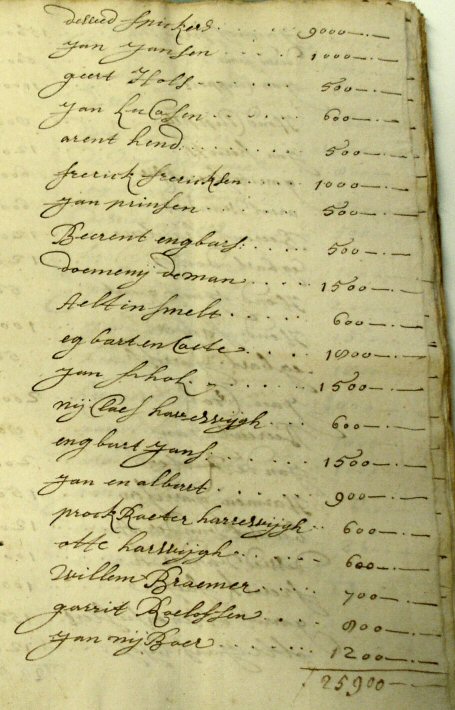 desred spickers 9000—.—
Jan Jansen 1000—.—
geert Hols 500—.—
Jan Lucasen 600—.—
arent hend: 500—.—
frerick frericksen 1000—.—
Jan prinsen 500—.—
Beerent engbars: 500—.—
doemenij deman 1500—.—
Aeltin smelt 600—.—
egbart en Coete 1800—.—
Jan schol 1500—.—
nij Claes harrewijgh 600—.—
engbart Jans 1500—.—
Jan en albert 900—.—
harrewijgh 600—.—
otte harwijgh 600—.—
Willem Braemer 700—.—
garrit Roelofsen 800—.—
Jan nij Boer 1200—.—
25900—.—